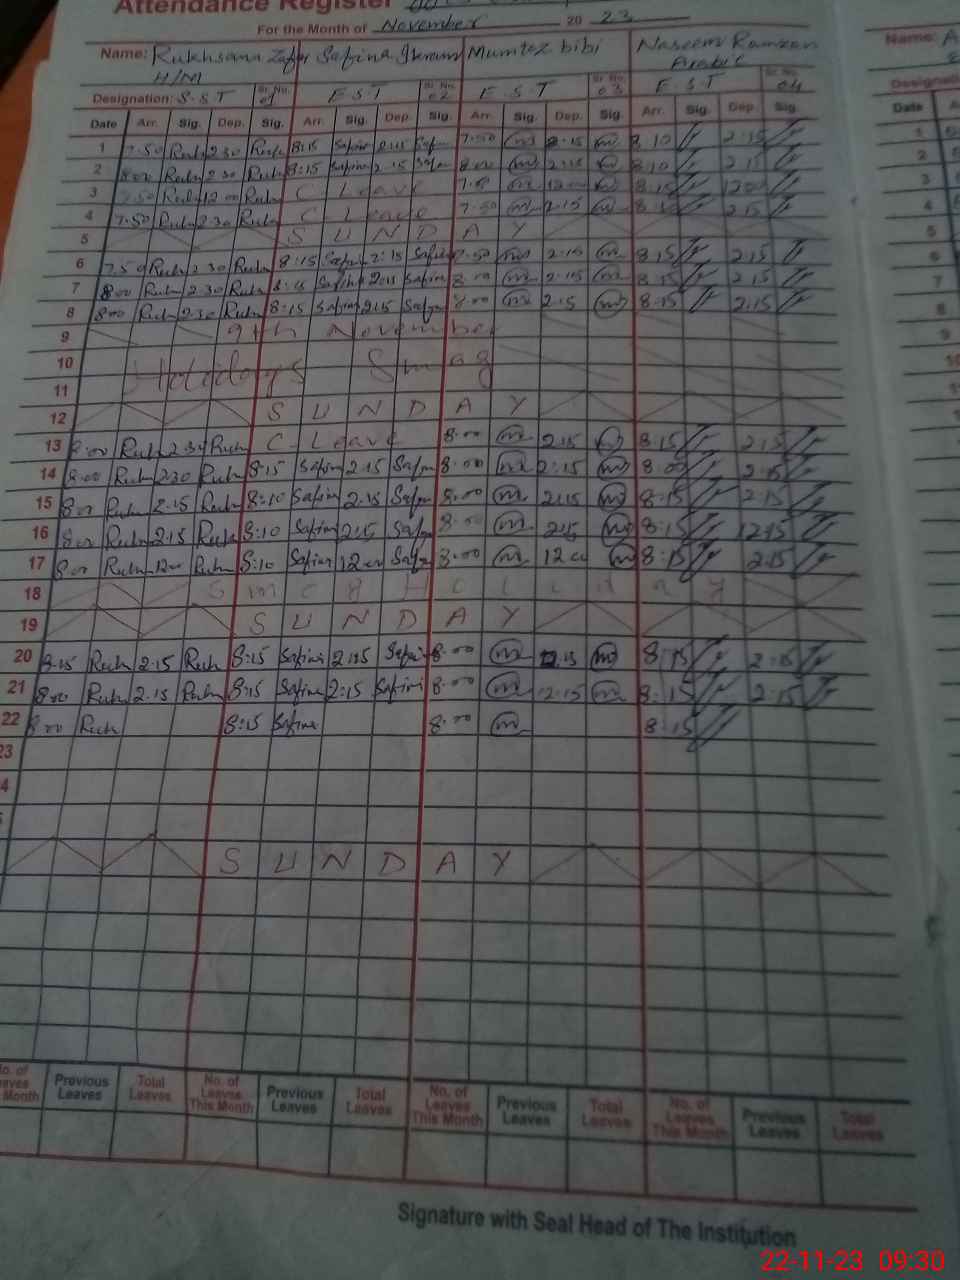 Attendance Register
For the Month of November 20 23
Name: Rukhsana Zafar Safina Ikram Mumtaz bibi Naseem Ramzan Name: A
H/M Arabic
Designation: S.S.T Sr. No. 01 E.S.T Sr. No. 02 E.S.T Sr. No. 03 E.S.T Sr. No. 04
Date Arr. Sig. Dep. Sig. Arr. Sig. Dep. Sig. Arr. Sig. Dep. Sig. Arr. Sig. Dep. Sig. Date
1 7.50 Rukh 2.30 Rukh 8:15 Safina 2:15 7.50 m 2.15 m 8.10 2.15 1
2 8.00 Rukh 2.30 Rukh 8:15 Safina 2.15 8.00 m 2.15 m 8.10 2.15 2
3 7.50 Rukh 12.00 Rukh C Leave m 12.00 m 8.15 12.00 3
4 7.50 Rukh 2.30 Rukh C Leave 7.50 m 2.15 m 2.15 4
5 SUNDAY 5
6 7.50 Rukh 2.30 Rukh 8:15 Safina 2:15 Safina 7.50 m 2.15 m 8.15 2.15 6
7 8.00 Rukh 2.30 Rukh 8:15 Safina 2.15 Safina 8.00 m 2.15 m 8.15 2.15 7
8 8.00 Rukh 2.30 Rukh 8:15 Safina 2.15 Safina 8.00 m 2.15 m 8.15 2.15 8
9 9th November 9
10 Holidays Smog 10
11
12 SUNDAY
13 8.00 Rukh 2.30 Rukh C-Leave 8.00 m 2.15 m 8.15 2.15
14 8.00 Rukh 2.30 Rukh 8:15 Safina 2.15 Safina 8.00 m 2.15 m 8.00 2.15
15 8.00 Rukh 2.15 Rukh 8:10 Safina 2.15 Safina 8.00 m 2.15 m 8.15 2.15
16 8.00 Rukh 2.15 Rukh 8:10 Safina 2:15 Safina 8.00 m 2.15 m 8:15 12.15
17 8.00 Rukh 12.00 Rukh 8:10 Safina 12.00 Safina 8.00 m 12.00 m 8:15 2.15
18 Smog Holiday
19 SUNDAY
20 8.15 Rukh 2.15 Rukh 8:15 Safina 2.15 Safina 8.00 m 2.15 m 8.15 2.15
21 8.00 Rukh 2.15 Rukh 8:15 Safina 2:15 Safina 8.00 m 2.15 m 8.15 2.15
22 8.00 Rukh 8:15 Safina 8.00 m 8.15
23
4
SUNDAY
No. of Leaves This Month Previous Leaves Total Leaves No. of Leaves This Month Previous Leaves Total Leaves No. of Leaves This Month Previous Leaves Total Leaves No. of Leaves This Month Previous Leaves Total Leaves
Signature with Seal Head of The Institution
22-11-23 09:30